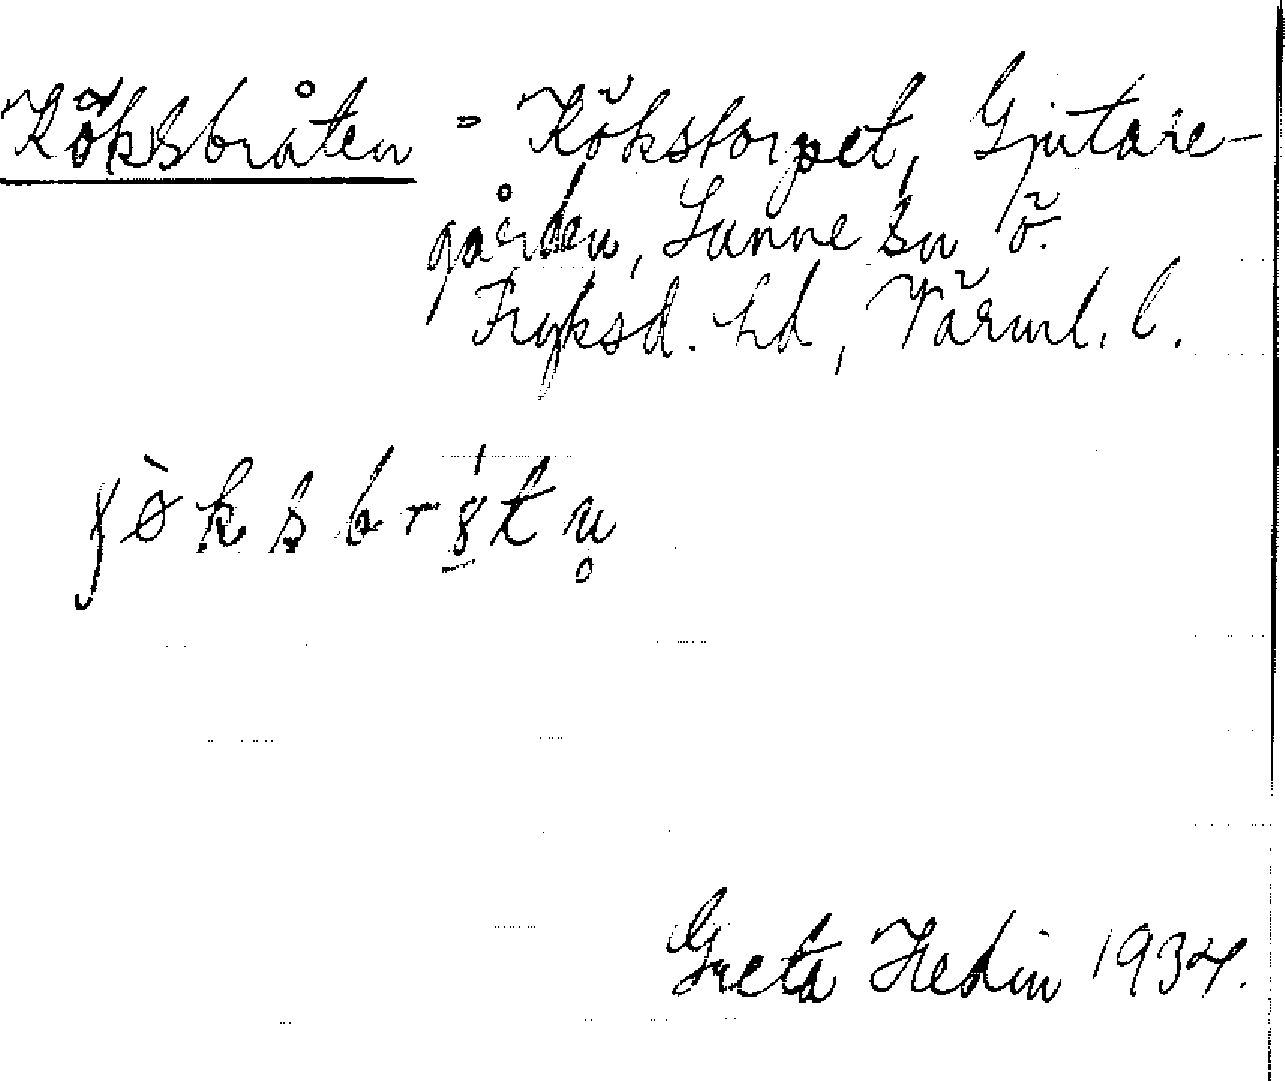 Köksbråten = Kökstorpet, Gjutare-
gården, Sunne sn Ö.
Fryksd. hd, Värml. l.
Greta Hedin 1934.